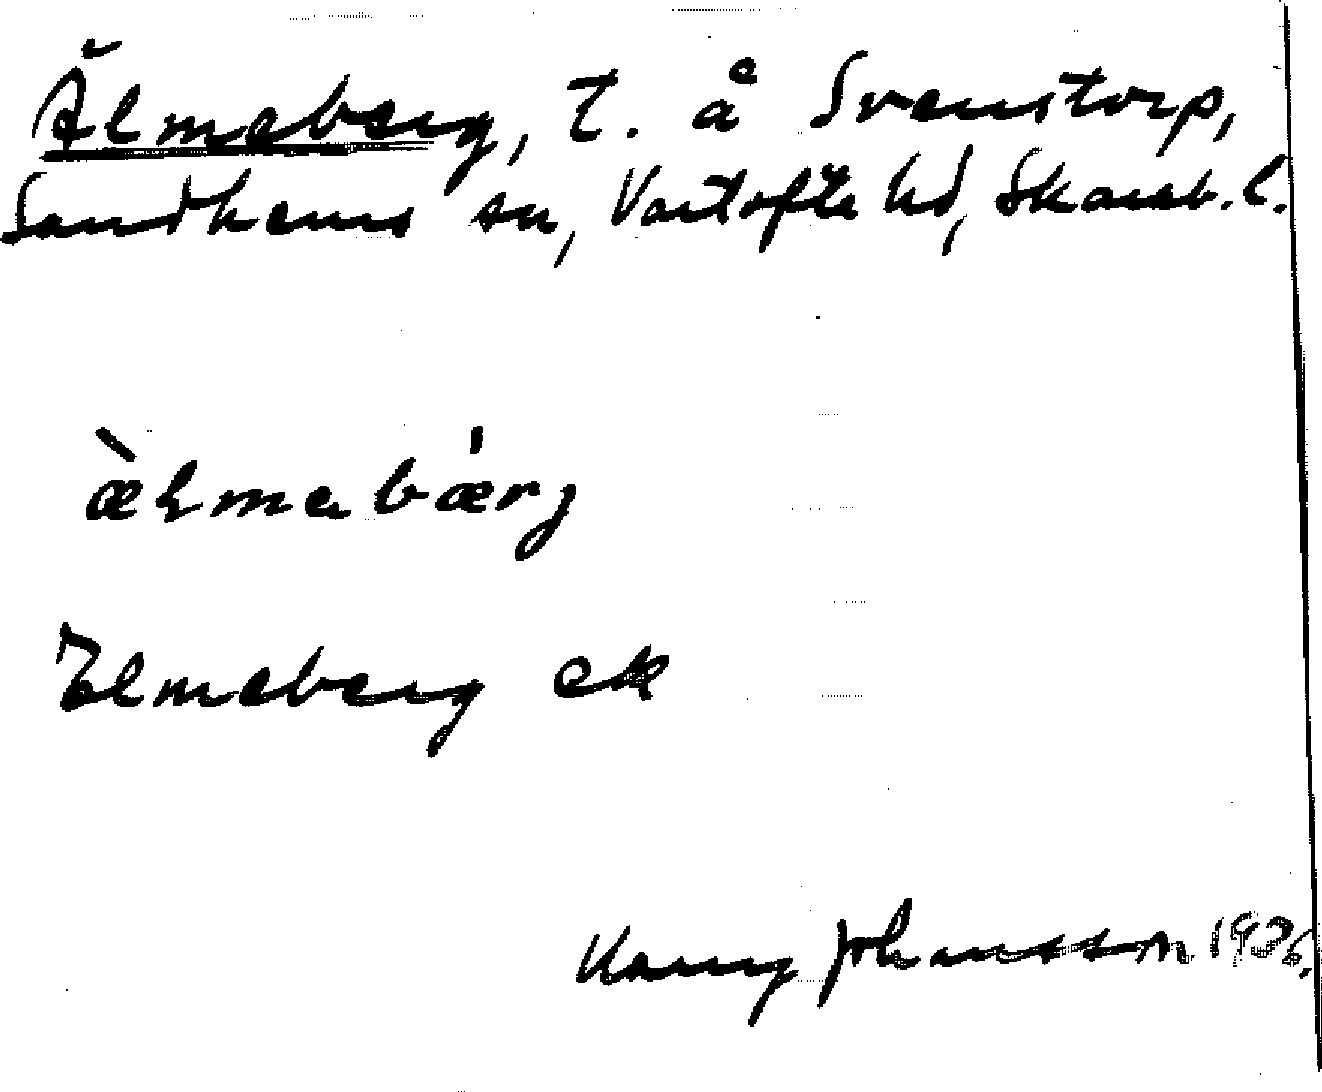 Älmeberg, t. å Svenstorp,
Sandhems sn, Vartofte hd, Skarab. l.
æ̀lmabǽrj
Elmeberg ek
Johansson 1936.